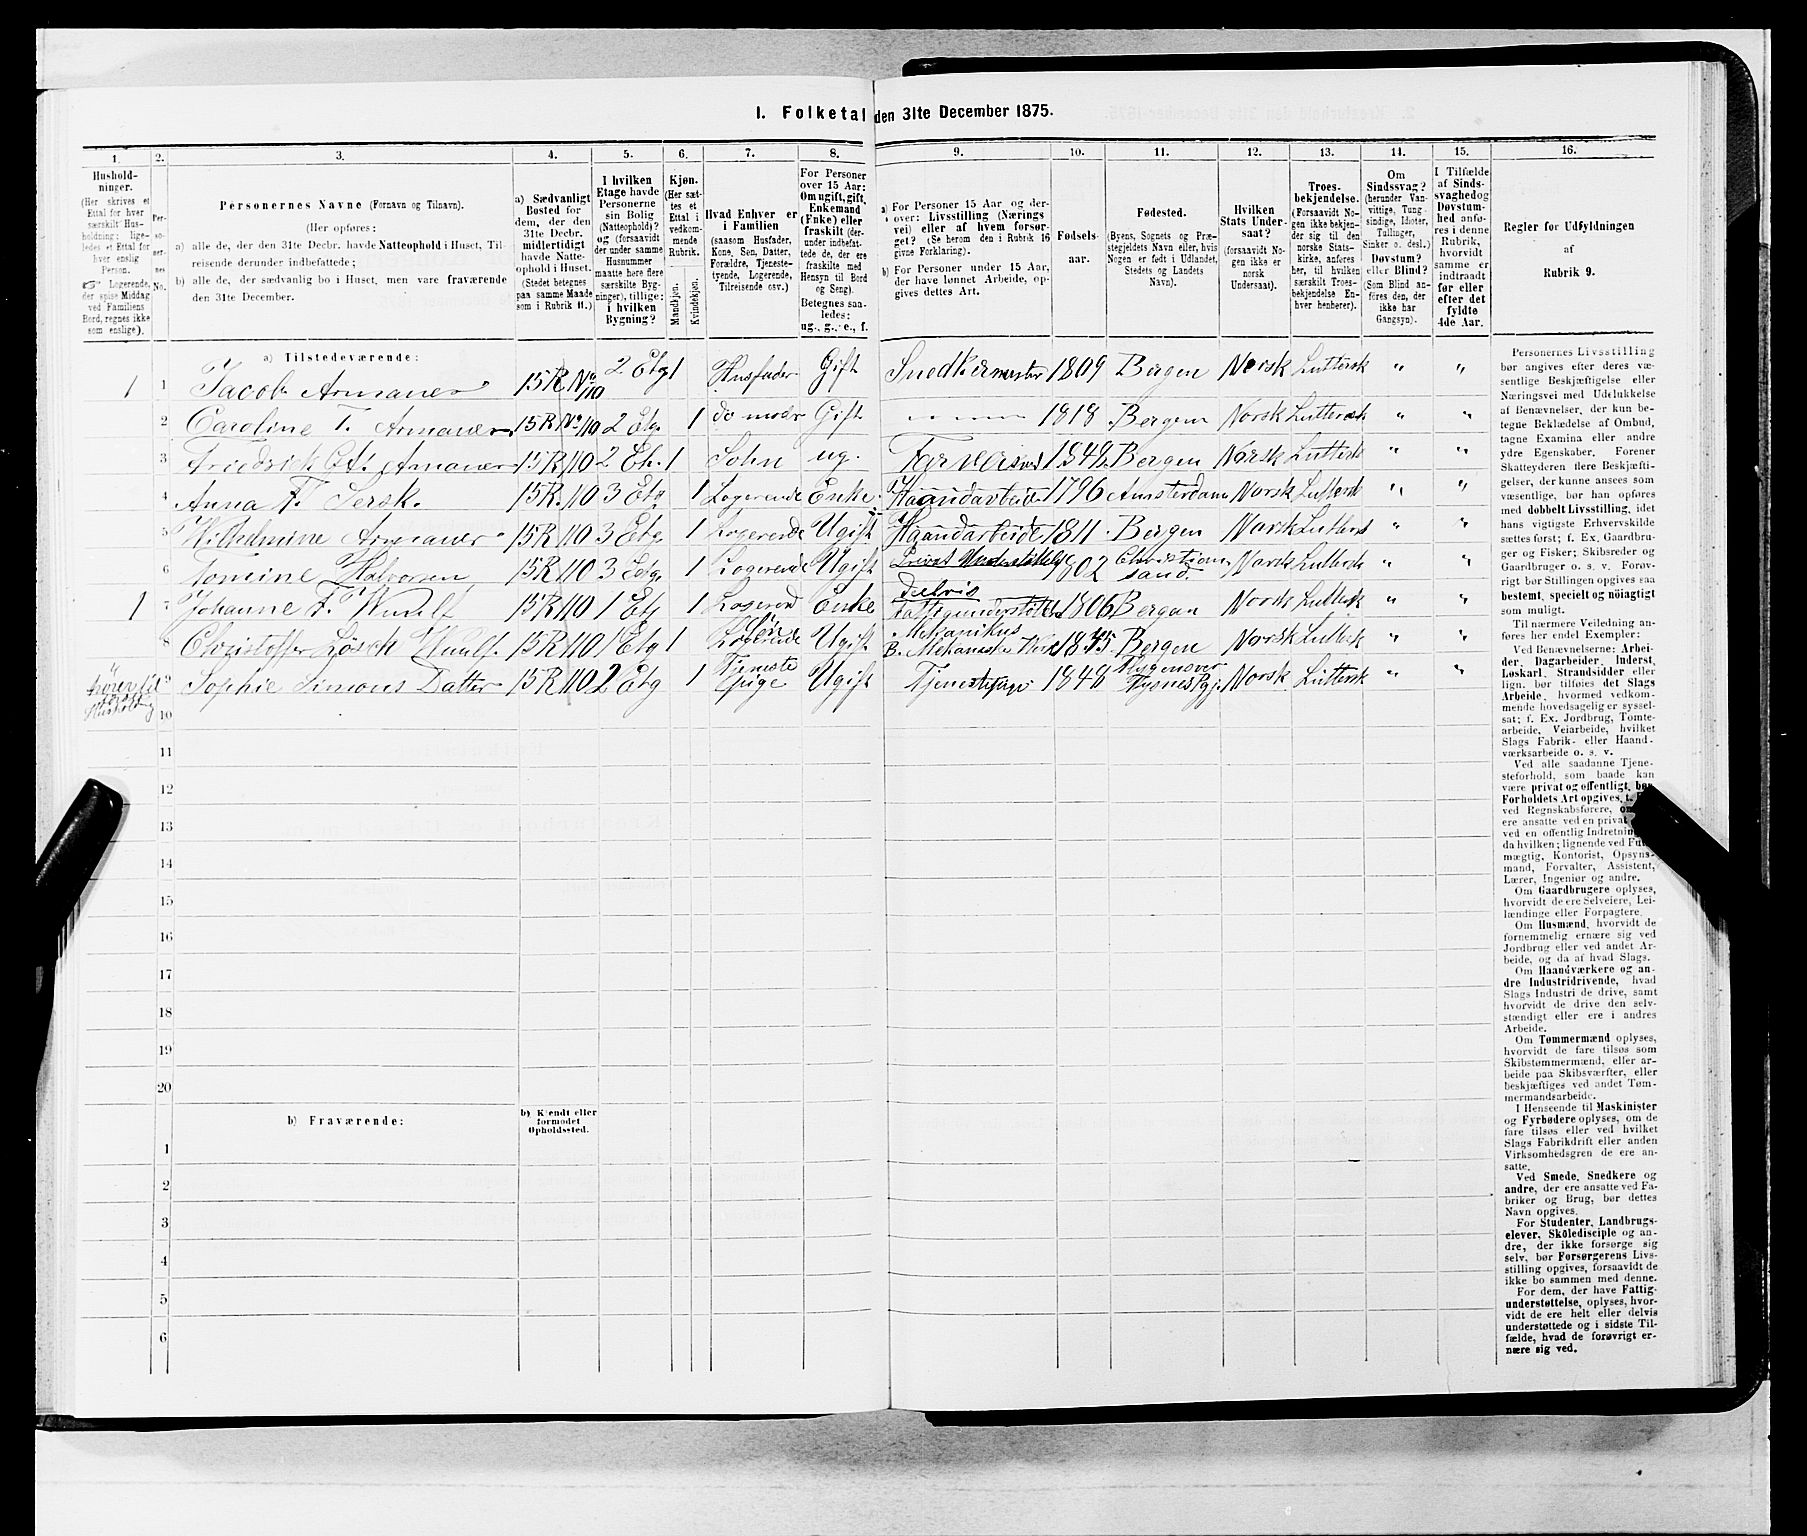 1. Folketal den 31te December 1875.
1. 2. 3. 4. 5. 6. 7. 8. 9. 10. 11. 12. 13. 14. 15. 16.
Hushold-
ninger.
(Her skrives et
Ettal for hver
særskilt Hus-
holdning; lige-
ledes et Ettal for
hver enslig
Person.
☞ Logerende,
der spise Middag
ved Familiens
Bord, regnes ikke
som enslige).
Per-
so-
ner-
nes
No.
Personernes Navne (Fornavn og Tilnavn).
(Her opføres:
a) alle de, der den 31te Decbr. havde Natteophold i Huset, Til-
reisende derunder indbefattede;
b) alle de, der sædvanlig bo i Huset, men vare fraværende
den 31te December.
a) Sædvanligt
Bosted for
dem, der den
31te Decbr.
midlertidigt
havde Natte-
ophold i Huset.
(Stedet betegnes
paa samme Maade
som i Rubrik 11.)
I hvilken
Etage havde
Personerne
sin Bolig
(Natteophold)?
og (forsaavidt
der under samme
Husnummer
maatte høre flere
særskilte Byg-
ninger), tillige:
i hvilken
Bygning?
Kjøn.
(Her sæt-
tes et
Ettal i
vedkom-
mende
Rubrik.
Mandkjøn.
Kvindekjøn.
Hvad Enhver er
i Familien
(saasom Husfader,
Kone, Søn, Datter,
Forældre, Tjeneste-
tyende, Logerende,
Tilreisende osv.)
For Personer
over 15 Aar:
Om ugift, gift,
Enkemand
(Enke) eller
fraskilt (der-
under indbefat-
tede de, der ere
fraskilte med
Hensyn til Bord
og Seng).
Betegnes saa-
ledes:
ug., g., e., f.
a) For Personer 15 Aar og der-
over: Livsstilling (Nærings
vei) eller af hvem forsør-
get? (Se herom den i Rubrik 16
givne Forklaring).
b) For Personer under 15 Aar,
der have lønnet Arbeide, op-
gives dettes Art.
Fødsels-
aar.
Fødested.
(Byens, Sognets og Præ-
stegjeldets Navn eller, hvis
Nogen er født i Udlandet,
Stedets og Landets
Navn).
Hvilken
Stats Under-
saat?
(forsaavidt No-
gen ikke er
norsk
Undersaat).
Troes-
bekjendelse.
(Forsaavidt No-
gen ikke bekjen-
der sig til den
norske Stats-
kirke, anføres
her, til hvilken
særskilt Troes-
bekjendelse En-
hver henhører).
Om
Sindssvag?
(herunder Van-
vittige, Tung-
sindige, Idioter,
Tullinger,
Sinker o. desl.)
Døvstum?
eller Blind?
(Som Blind an-
føres den, der
ikke har
Gangsyn).
I Tilfælde
af Sinds-
svaghed og
Døvstum-
hed anfø-
res i denne
Rubrik,
hvorvidt
samme er
indtraadt
før eller
efter det
fyldte
4de Aar.
Regler for Udfyldningen
af
Rubrik 9.
a) Tilstedeværende:
1 1 Jacob Armauer 15 R No 110 2 Etg 1 Husfader Gift Snedkermester 1809 Bergen Norsk Luttersk " "
2 Caroline T. Armauer 15 R No 110 2 Etg 1 do modr Gift 1818 Bergen Norsk Luttersk " "
3 Friedrick Armauer 15 R 110 2 Et. 1 Søhn ug. 1842 Bergen Norsk Luttersk " "
4 Anna F. Sersk. 15 R. 110 3 Etg 1 Logerende Enke Haandarbeide 1796 Amsterdam Norsk Luttersk " "
5 Wilhelmine Armauer 15 R 110 3 Etg 1 Logerende Ugift Haandarbeide 1811 Bergen Norsk Luttersk " "
6 Tomine Halvorsen 15 R 110 3 Etg 1 Logerende Ugift Privat Understøttelse 1802 Christian
sand. Norsk Luttersk " "
1 7 Johanne F. Wuulf 15 R 110 1 Etg 1 Logerend Enke Delvis
Fattigunderstøttelse 1806 Bergen Norsk Luttersk " "
8 Christoffer Løsck Wuulf 15 R 110 1 Etg 1 Søn Logerende Ugift Mekanikus
B. Mekanske Værk 1845 Bergen Norsk Luttersk " "
hører til
første
Husholdng 9 Sophie Simons Datter 15 R 110 2 Etg 1 Tjeneste
pige Ugift Tjenestepige 1848 Tysnes Pgj Norsk Luttersk " "
10
11
12
13
14
15
16
17
18
19
20
b) Fraværende:
b) Kjendt eller
formodet
Opholdssted.
1
2
3
4
5
6
Personernes Livsstilling
bør angives efter deres væ-
sentlige Beskjæftigelse eller
Næringsvei med Udelukkelse
af Benævnelser, der kun be-
tegne Beklædelse af Ombud,
tagne Examina eller andre
ydre Egenskaber. Forener
Skatteyderen flere Beskjæfti-
gelser, der kunne ansees som
væsentlige, bør han opføres
med dobbelt Livsstilling, idet
hans vigtigste Erhvervskilde
sættes først; f. Ex. Gaardbru-
ger og Fisker; Skibsreder og
Gaardbruger o. s. v. Forøv-
rigt bør Stillingen opgives saa
bestemt, specielt og nøiagtigt
som muligt.
Til nærmere Veiledning an-
føres her endel Exempler:
Ved Benævnelserne: Arbei-
der, Dagarbeider, Inderst,
Løskarl, Strandsidder eller
lign. bør tilføies det Slags
Arbeide, hvormed vedkom-
mende hovedsagelig er syssel-
sat; f. Ex. Jordbrug, Tomte-
arbeide, Veiarbeide, hvilket
Slags Fabrik- eller Haand-
værksarbeide o. s. v.
Ved alle saadanne Tjene-
steforhold, som baade kan
være privat og offentligt, bør
Forholdets Art opgives, t.
ved Regnskabsførere, om
ere ansatte ved en privat
ved en offentlig Indretning
da hvilken; lignende ved Fuld-
mægtig, Kontorist, Opsyns-
mand, Forvalter, Assistent,
Lærer, Ingeniør og andre.
Om Gaardbrugere oplyses,
hvorvidt de ere Selveiere, Lei-
lændinge eller Forpagtere.
Om Husmænd, hvorvidt de
fornemmelig ernære sig ved
Jordbrug eller ved andet Ar-
beide, og da af hvad Slags.
Om Haandværkere og an-
dre Industridrivende, hvad
Slags Industri de drive, samt
hvorvidt de drive den selv-
stændigt eller ere i andres
Arbeide.
Om Tømmermænd oplyses,
hvorvidt de fare tilsøs som
Skibstømmermænd, eller ar-
beide paa Skibsværfter, eller
beskjæftiges ved andet Tøm-
mermandsarbeide.
I Henseende til Maskinister
og Fyrbødere oplyses, om de
fare tilsøs eller ved hvilket
Slags Fabrikdrift eller anden
Virksomhedsgren de ere an-
satte.
Ved Smede, Snedkere og
andre, der ere ansatte ved Fa-
briker og Brug, bør dettes
Navn opgives.
For Studenter, Landbrugs-
elever, Skoledisciple og an-
dre, der ikke forsørge sig
selv, bør Forsørgerens Livs-
stilling opgives, forsaavidt de
ikke bo sammen med denne.
For dem, der have Fattig-
understøttelse, oplyses, hvor-
vidt de ere helt eller delvis
understøttede og i sidste Til-
fælde, hvad de forøvrigt er-
nære sig ved.